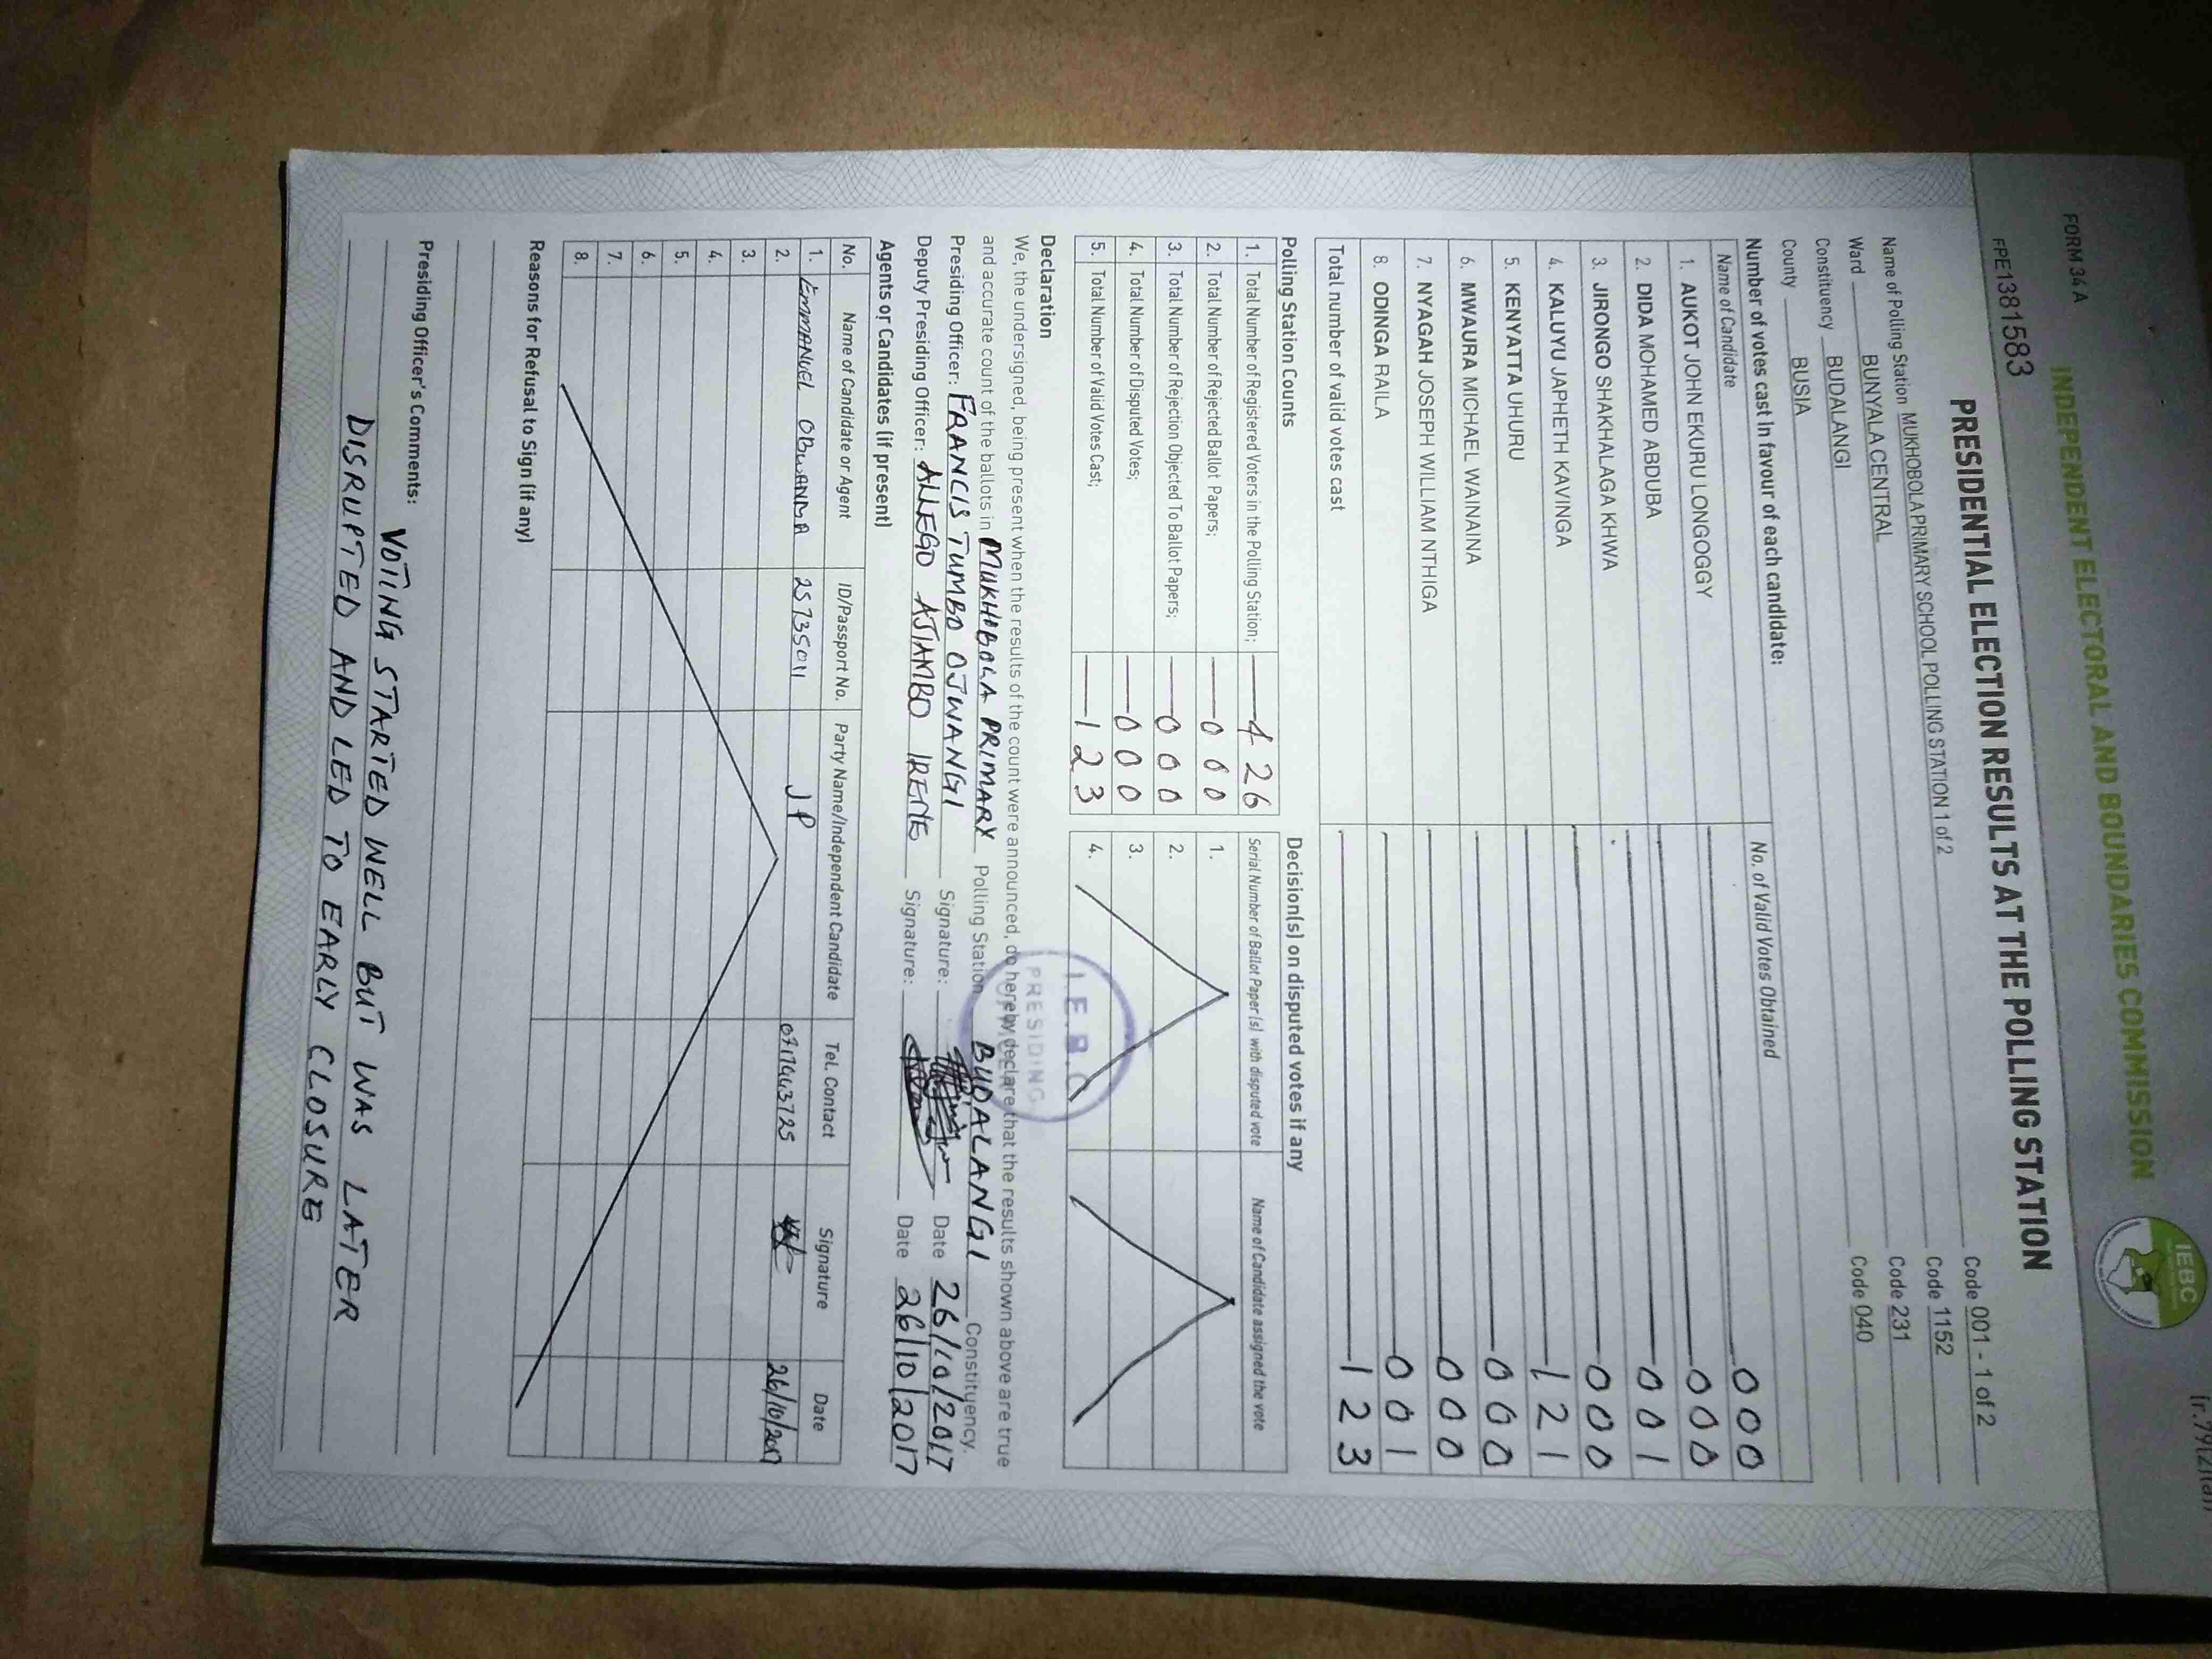 Ir.7912
FORM 34 A
INDEPENDENT ELECTORAL AND BOUNDARIES COMMISSION
IEBC
FPE1381583
PRESIDENTIAL ELECTION RESULTS AT THE POLLING STATION
Name of Polling Station MUKHOBOLA PRIMARY SCHOOL POLLING STATION 1 of 2 Code 001 - 1 of 2
Ward BUNYALA CENTRAL Code 1152
Constituency BUDALANGI Code 231
County BUSIA Code 040
Number of votes cast in favour of each candidate:
Name of Candidate No. of Valid Votes Obtained
1. AUKOT JOHN EKURU LONGOGGY 000
2. DIDA MOHAMED ABDUBA 000
3. JIRONGO SHAKHALAGA KHWA 001
4. KALUYU JAPHETH KAVINGA 000
5. KENYATTA UHURU 121
6. MWAURA MICHAEL WAINAINA 000
7. NYAGAH JOSEPH WILLIAM NTHIGA 000
8. ODINGA RAILA 001
Total number of valid votes cast 123
Polling Station Counts Decision(s) on disputed votes if any
Serial Number of Ballot Paper(s) with disputed vote Name of Candidate assigned the vote
1. Total Number of Registered Voters in the Polling Station; 426
2. Total Number of Rejected Ballot Papers; 000 1.
3. Total Number of Rejection Objected To Ballot Papers; 000 2.
4. Total Number of Disputed Votes; 000 3.
5. Total Number of Valid Votes Cast; 123 4.
I.E.B.C
PRESIDING
Declaration
We, the undersigned, being present when the results of the count were announced, do hereby declare that the results shown above are true
and accurate count of the ballots in MUKHOBOLA PRIMARY Polling Station BUDALANGI Constituency.
Presiding Officer: FRANCIS TUMBO OJWANGI Signature: Date 26/10/2017
Deputy Presiding Officer: ALLEGO AJIAMBO IRENE Signature: Date 26/10/2017
Agents or Candidates (if present)
No. Name of Candidate or Agent ID/Passport No. Party Name/Independent Candidate Tel. Contact Signature Date
1. EMMANUEL OBUANDA 25735011 JP 0717443725 26/10/2017
2.
3.
4.
5.
6.
7.
8.
Reasons for Refusal to Sign (if any)
Presiding Officer's Comments: VOTING STARTED WELL BUT WAS LATER
DISRUPTED AND LED TO EARLY CLOSURE